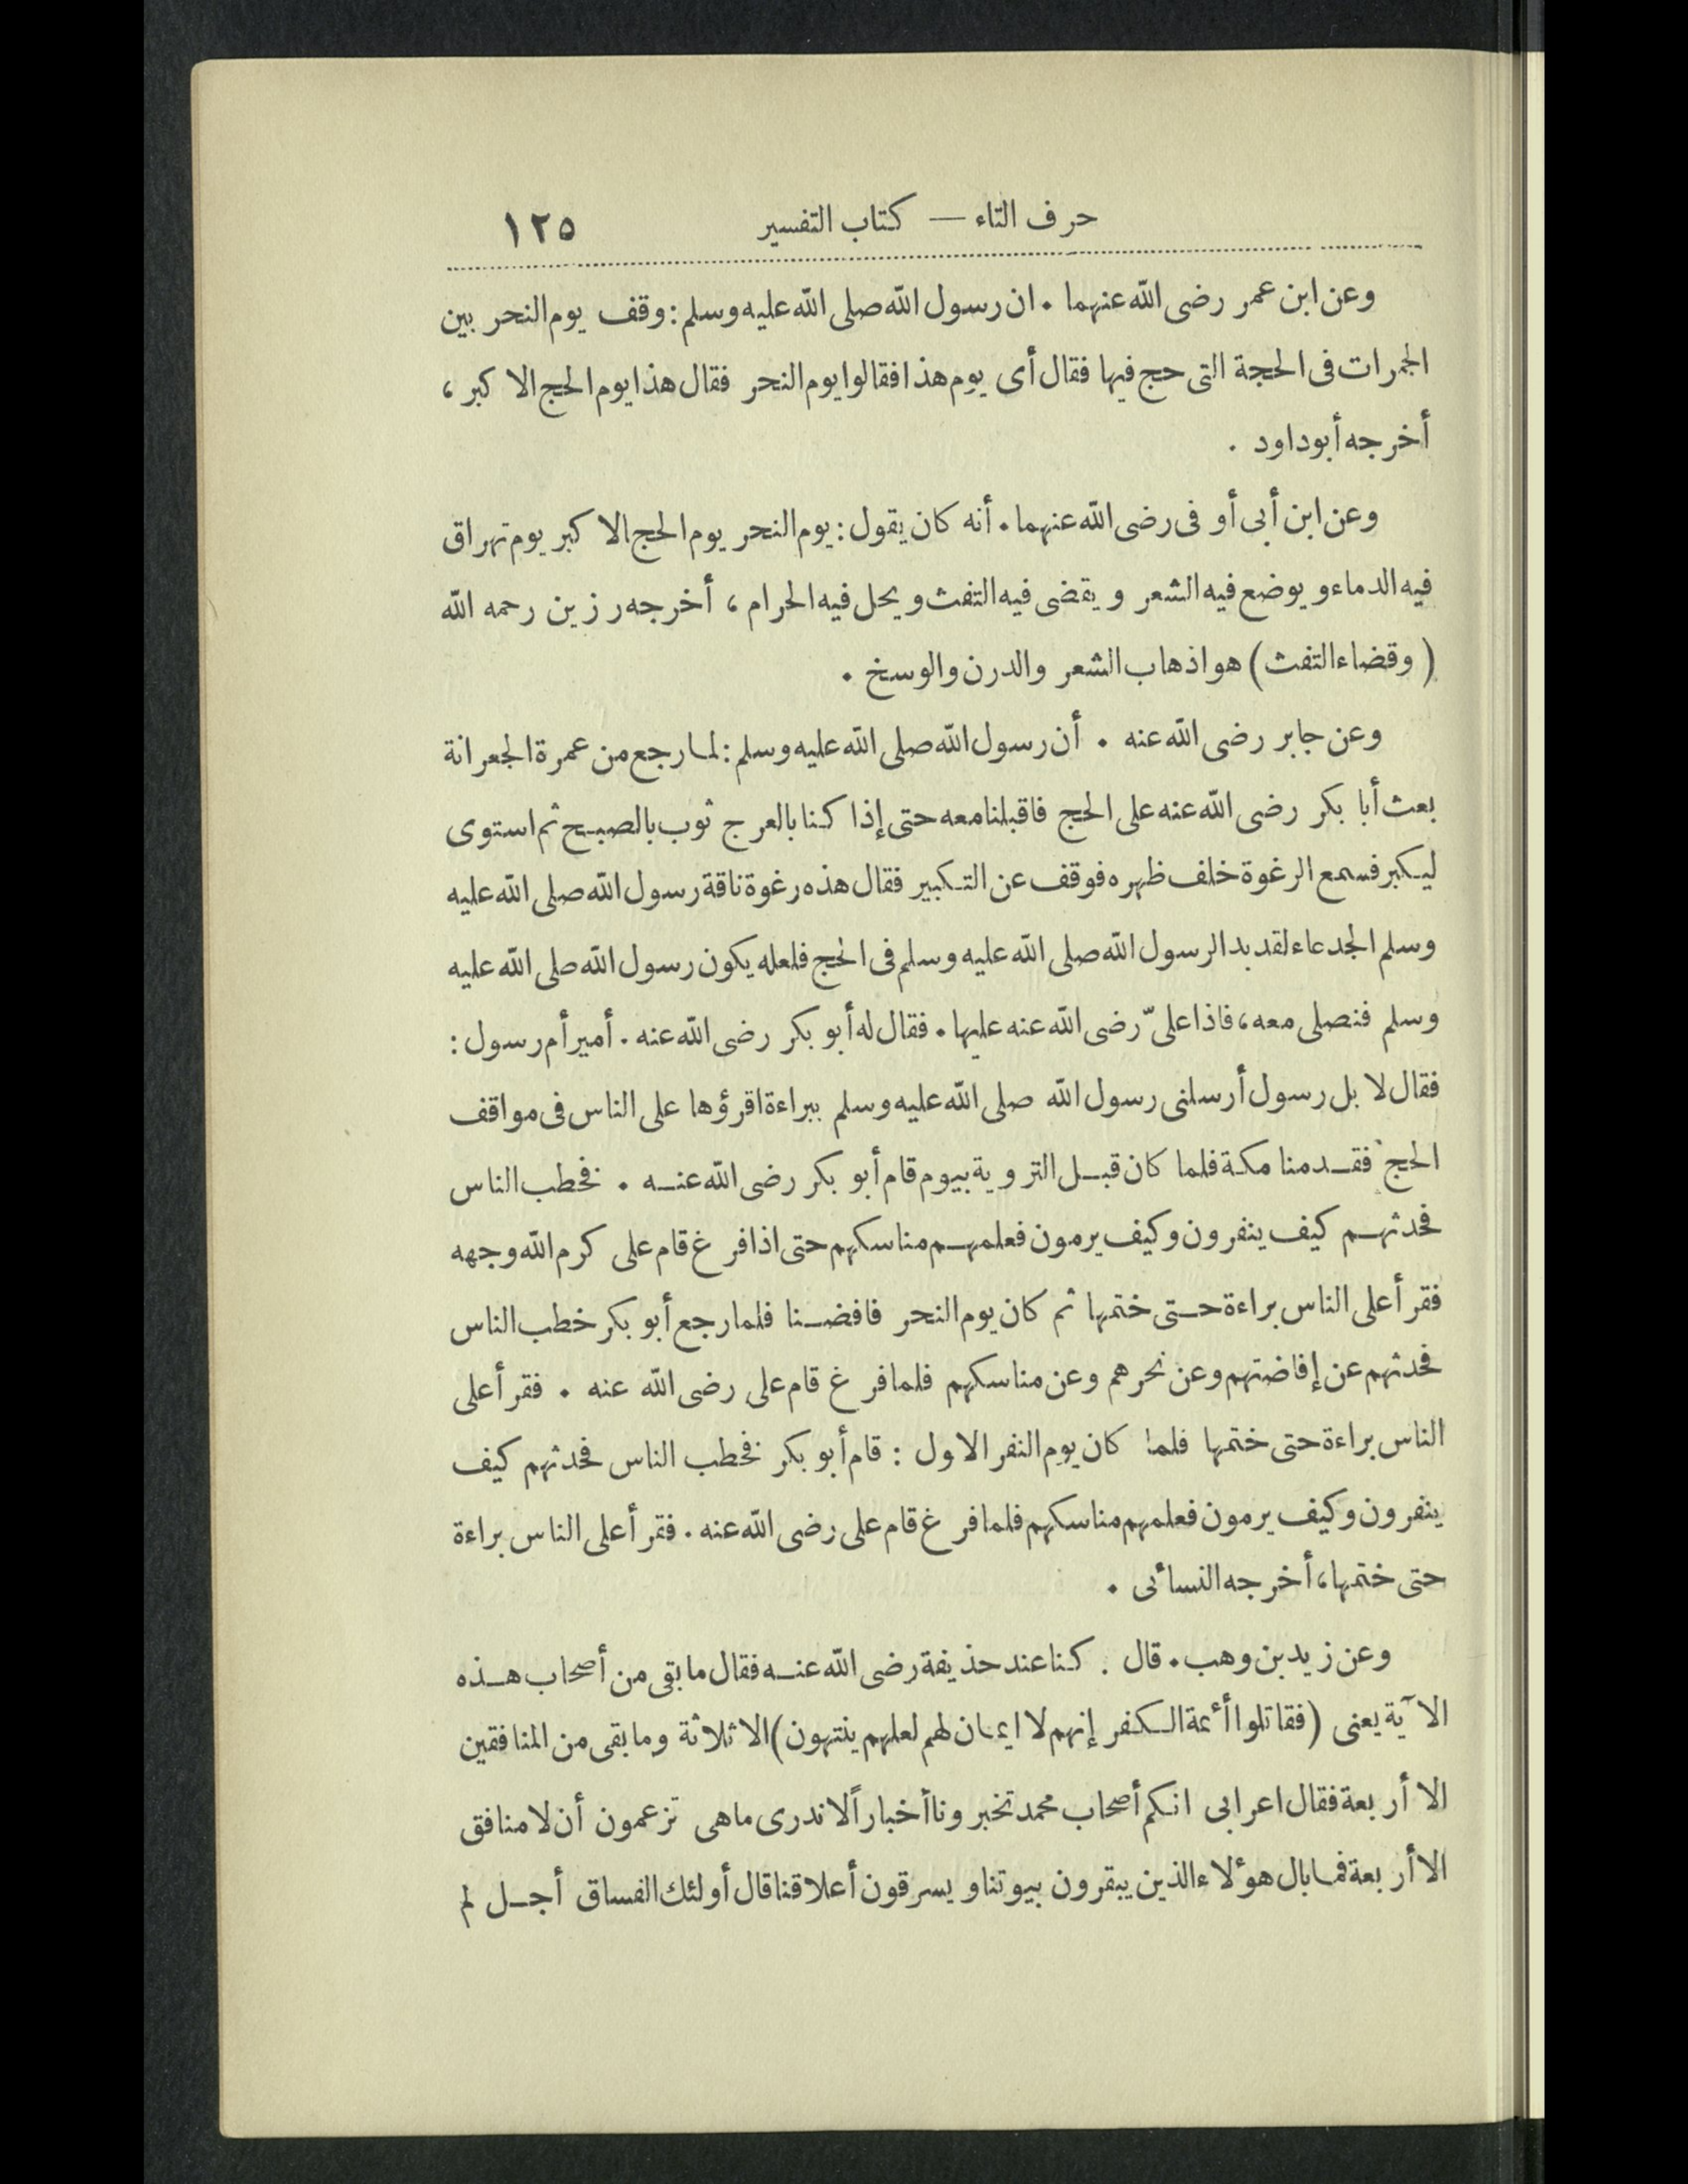 حرف التاء — كتاب التفسير ١٢٥
وعن ابن عمر رضى الله عنهما . ان رسول الله صلى الله عليه وسلم : وقف يوم النحر بين
الجمرات فى الحجة التى حج فيها فقال أى يوم هذا فقالوا يوم النحر فقال هذا يوم الحج الا كبر ،
أخرجه أبو داود .
وعن ابن أبى أوفى رضى الله عنهما . أنه كان يقول : يوم النحر يوم الحج الا كبر يوم تهراق
فيه الدماء و يوضع فيه الشعر و يقضى فيه التفث و يحل فيه الحرام ، أخرجه رزين رحمه الله
( وقضاء التفث ) هو اذهاب الشعر والدرن والوسخ .
وعن جابر رضى الله عنه . أن رسول الله صلى الله عليه وسلم : لما رجع من عمرة الجعرانة
بعث أبا بكر رضى الله عنه على الحج فاقبلنا معه حتى إذا كنا بالعرج ثوب بالصبح ثم استوى
ليكبر فسمع الرغوة خلف ظهره فوقف عن التكبير فقال هذه رغوة ناقة رسول الله صلى الله عليه
وسلم الجدعاء لقد بدا لرسول الله صلى الله عليه وسلم فى الحج فلعله يكون رسول الله صلى الله عليه
وسلم فنصلى معه ، فاذا علىّ رضى الله عنه عليها . فقال له أبو بكر رضى الله عنه . أمير أم رسول :
فقال لا بل رسول أرسلنى رسول الله صلى الله عليه وسلم ببراءة اقرؤها على الناس فى مواقف
الحج فقدمنا مكة فلما كان قبل التروية بيوم قام أبو بكر رضى الله عنه . فخطب الناس
فحدثهم كيف ينفرون وكيف يرمون فعلمهم مناسكهم حتى اذا فرغ قام على كرم الله وجهه
فقرأ على الناس براءة حتى ختمها ثم كان يوم النحر فافضنا فلما رجع أبو بكر خطب الناس
فحدثهم عن إفاضتهم وعن نحرهم وعن مناسكهم فلما فرغ قام على رضى الله عنه . فقرأ على
الناس براءة حتى ختمها فلما كان يوم النفر الاول : قام أبو بكر فخطب الناس فحدثهم كيف
ينفرون وكيف يرمون فعلمهم مناسكهم فلما فرغ قام على رضى الله عنه . فقرأ على الناس براءة
حتى ختمها ، أخرجه النسائى .
وعن زيد بن وهب . قال . كنا عند حذيفة رضى الله عنه فقال ما بقى من أصحاب هذه
الآية يعنى ( فقاتلوا أئمة الكفر إنهم لا ايمان لهم لعلهم ينتهون ) الا ثلاثة وما بقى من المنافقين
الا أربعة فقال اعرابى انكم أصحاب محمد تخبروننا أخباراً لا ندرى ما هى تزعمون أن لا منافق
الا أربعة فما بال هؤلاء الذين يبقرون بيوتنا ويسرقون أعلاقنا قال أولئك الفساق أجل لم